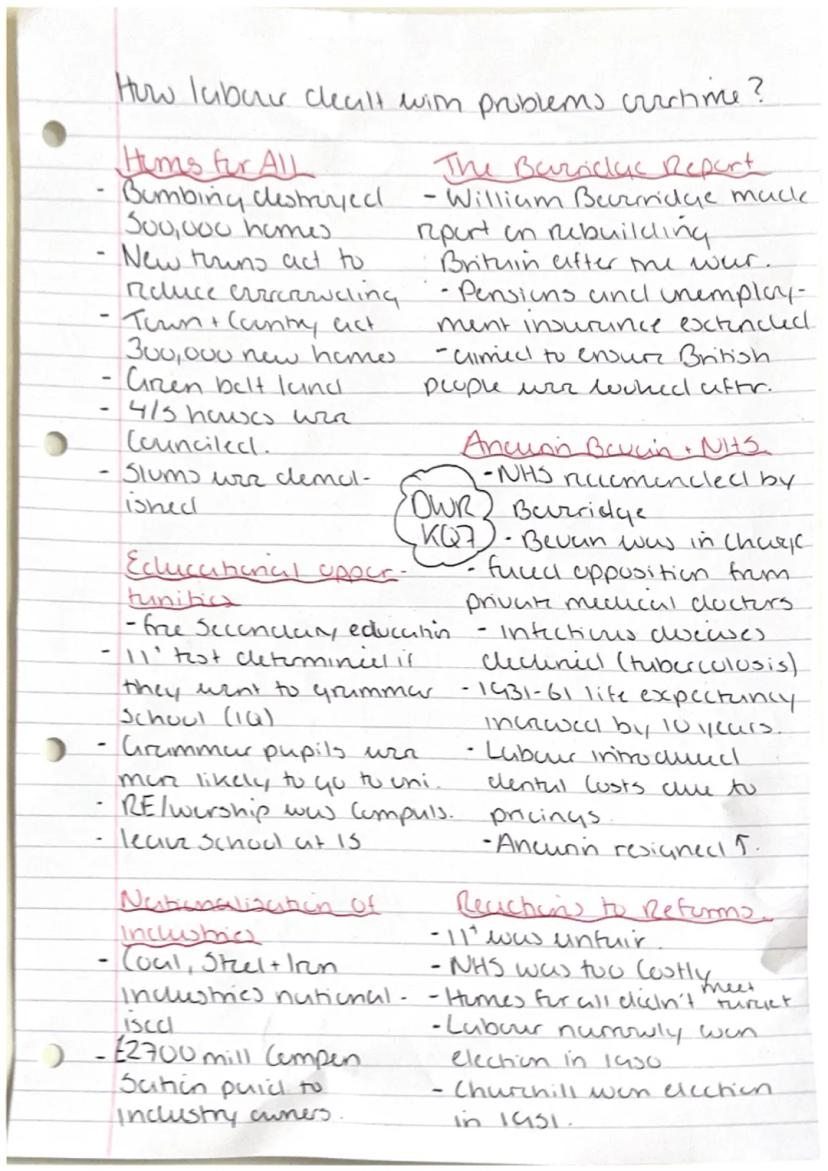 How labour dealt with problems overtime?
Homes for All
- Bombing destroyed
500,000 homes
- New towns act to
reduce overcrowding
- Town + Country act
300,000 new homes
- Green belt land
- 4/5 houses were
Counciled.
- Slums were demol-
ished
Educational oppor-
tunities
- free secondary education
- 11+ test determined if
they went to grammar
school (IQ)
- Grammar pupils were
more likely to go to uni.
- RE/worship was compuls.
- leave school at 15
Nationalisation of
Industries
- Coal, Steel + Iron
industries national-
ised
- £2700 mill compen
sation paid to
industry owners.
The Beveridge Report
- William Beveridge made
report on rebuilding
Britain after the war.
- Pensions and unemploy-
ment insurance extended
- aimed to ensure British
people were looked after.
Aneurin Bevan + NHS
DWR
KQ7
- NHS recomended by
Beveridge
- Bevan was in charge
- faced opposition from
private medical doctors
- Infectious diseases
declined (tuberculosis)
- 1931-61 life expectancy
increased by 10 years.
- Labour introduced
dental costs due to
pricings.
- Aneurin resigned ↑.
Reactions to Reforms.
- 11+ was unfair.
- NHS was too costly
- Homes for all didn't meet target
- Labour narrowly won
election in 1950
- Churchill won election
in 1951.